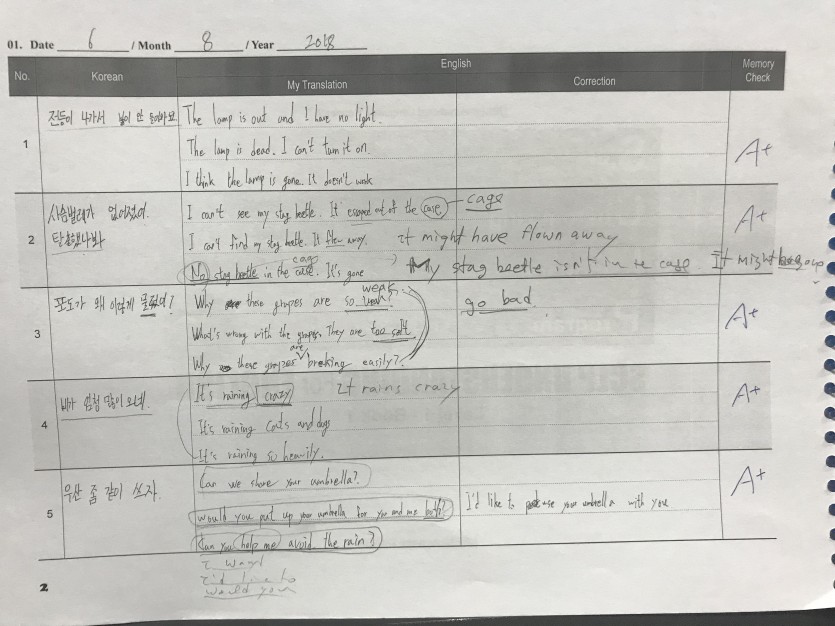 01. Date 6 / Month 8 / Year 2018
No. Korean English Memory Check
My Translation Correction
1 전등이 나가서 불이 안 들어와요 The lamp is out and I have no light.
The lamp is dead. I can't turn it on.
I think the lamp is gone. It doesn't work
A+
2 사슴벌레가 없어졌어. I can't see my stag beetle. It escaped out of the case cage
탈출했나봐 I can't find my stag beetle. It flew away. It might have flown away
cage
No stag beetle in the case. It's gone My stag beetle isn't in case. It might
A+
3 포도가 왜 이렇게 물렀어? Why these grapes are so weak? weak go bad
What's wrong with the grapes. They are too soft
are
Why these grapes breaking easily?
A+
4 비가 엄청 많이 오네. It's raining crazy It rains crazy
It's raining cats and dogs
It's raining so heavily.
A+
5 우산 좀 같이 쓰자. Can we share your umbrella?
would you put up your umbrella for you and me both? I'd like to use your umbrella with you
Can you help me avoid the rain?
A+
would you
2